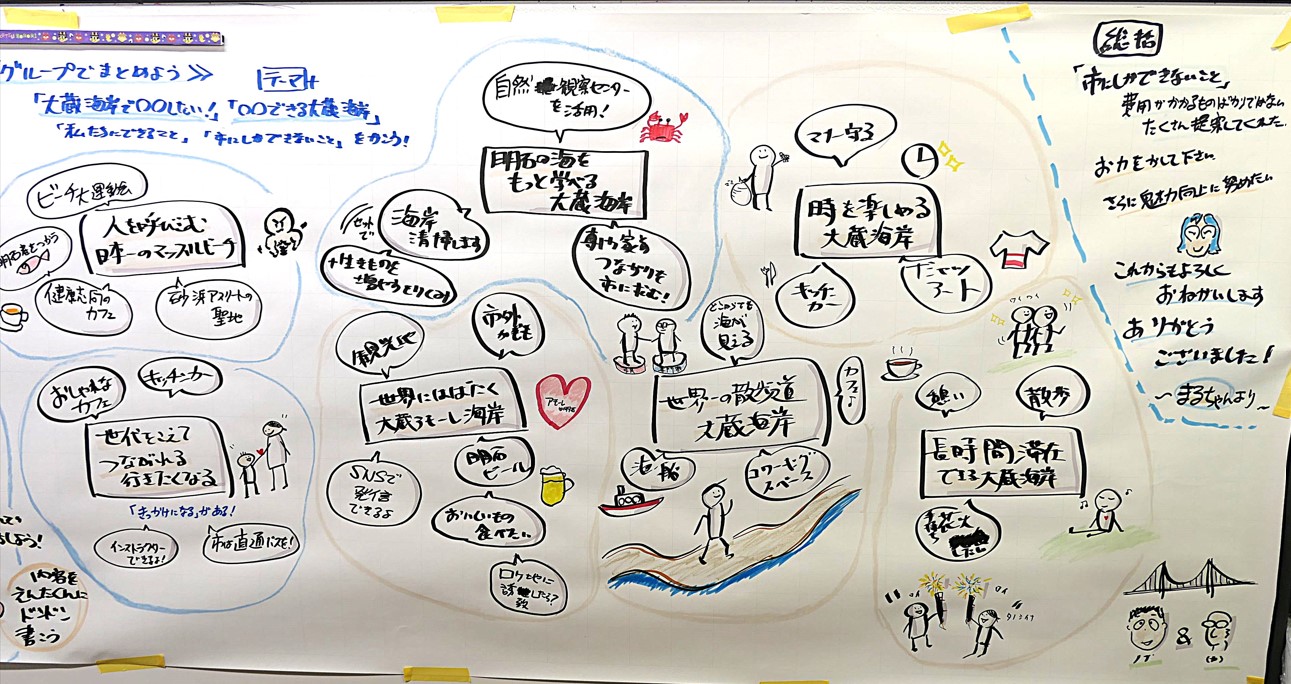 グループでまとめよう≫
テーマ
「大蔵海岸で〇〇したい！」「〇〇できる大蔵海岸」
「私たちにできること」「市にしかできないこと」をかこう！
ビーチ大運動会
人を呼びこむ
日本一のマッスルビーチ
健康志向の
カフェ
砂浜アスリートの
聖地
おしゃれな
カフェ
キッチンカー
世代をこえて
つながれる
行きたくなる
「きっかけになる」がある！
インストラクター
できるよ！
市は直通バスを！
内容を
えんたくんに
ドンドン
書こう
自然観察センター
を活用！
明石の海を
もっと学べる
大蔵海岸
セットで
海岸
清掃します
専門家を
つながりを
市に求む！
観光地
市外
世界にはばたく
海岸
SNSで
発信
できるよ
明石
ビール
おいしいもの
食べたい
ロケ地に
どこからでも
海が
見える
世界一の散歩道
大蔵海岸
カフェ♪
コワーキング
スペース
マナー守る
時を楽しめる
大蔵海岸
キッチン
カー
だてツ
アート
憩い
散歩
長時間滞在
できる大蔵海岸
総括
「市にしかできないこと」
費用がかかるものばかりではない
たくさん提案してくれた
お力をかして下さい
さらに魅力向上に努めたい
これからもよろしく
おねがいします
ありがとう
ございました！
～まるちゃんより～
&